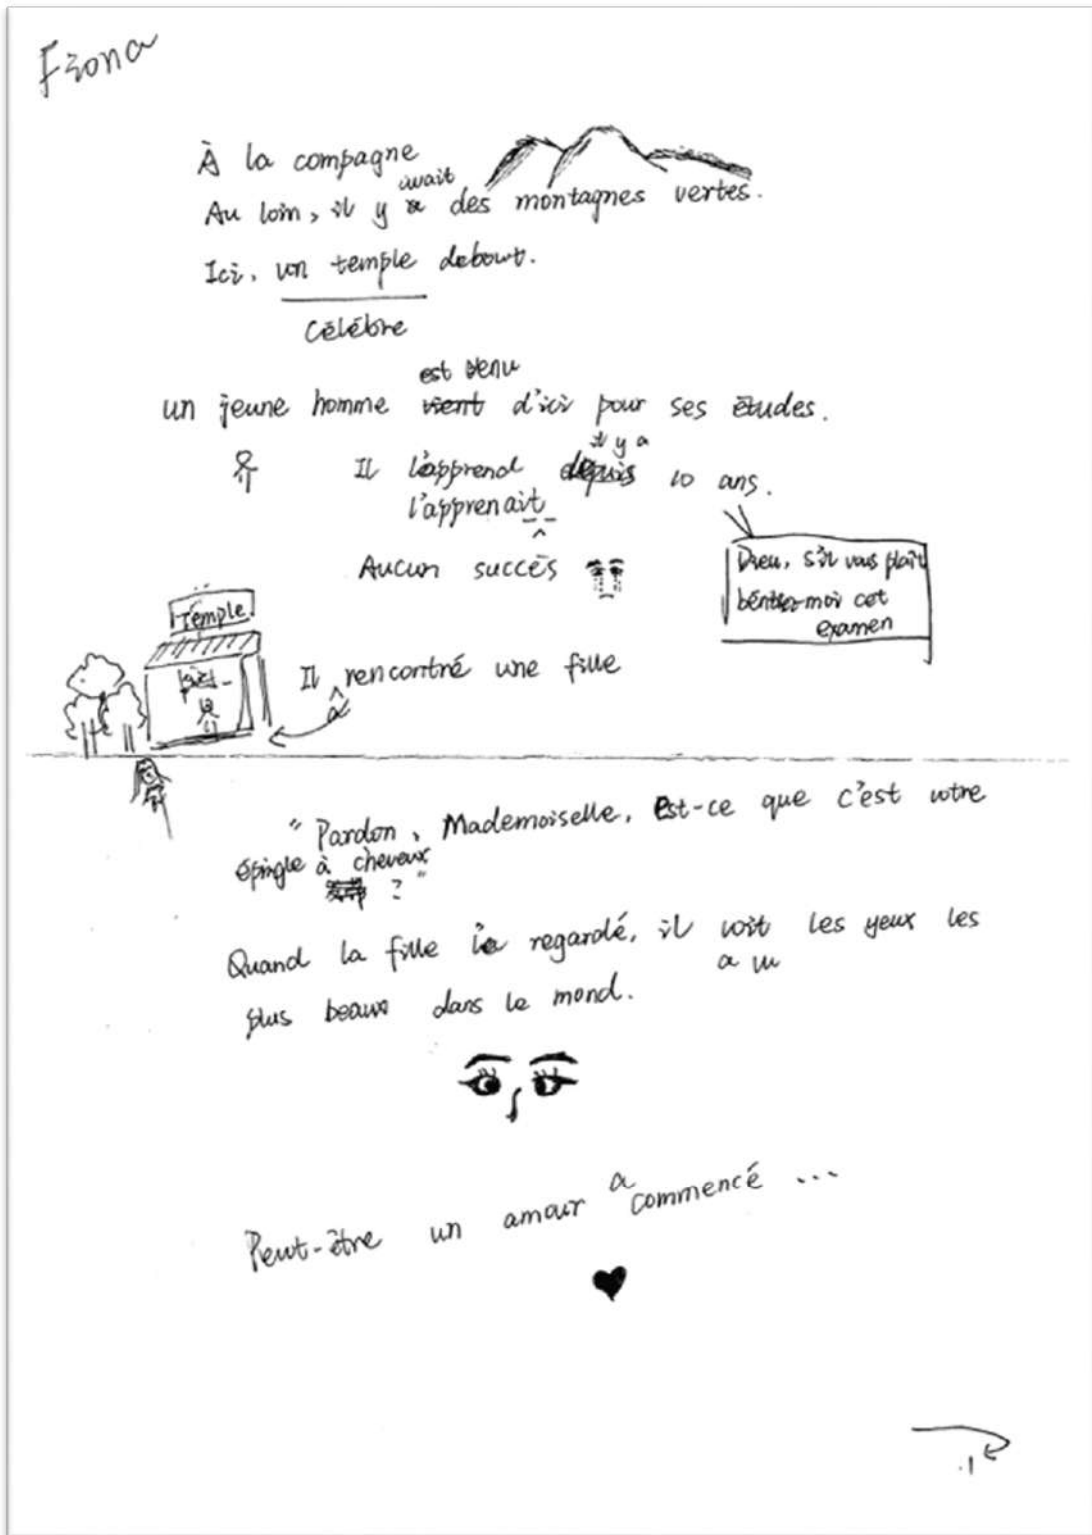 Fiona
À la compagne
avait
Au loin, il y a des montagnes vertes.
Ici, un temple debout.
Célébre
est venu
un jeune homme vient d'ici pour ses études.
il y a
Il l'apprend depuis 10 ans.
l'apprenait
Aucun succès
Dieu, s'il vous plaît
moi cet
examen
Temple
Il rencontré une fille
a
"Pardon, Mademoiselle, Est-ce que c'est votre
épingle à cheveux
?"
Quand la fille regardé, il voit les yeux les
a vu
plus beaux dans le mond.
a
Peut-être un amour commencé ...